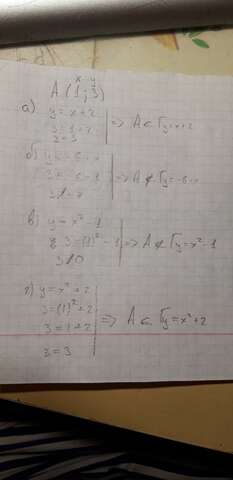 x y
A (1; 3)
а) y = x + 2
3 = 1 + 2
3 = 3
=> A ∈ Гy = x + 2
б) y = -6 - x
3 ≠ -7
=> A ∉ Гy = -6 - x
в) y = x² - 1
3 = (1)² - 1
3 ≠ 0
=> A ∉ Гy = x² - 1
г) y = x² + 2
3 = (1)² + 2
3 = 1 + 2
3 = 3
=> A ∈ Гy = x² + 2